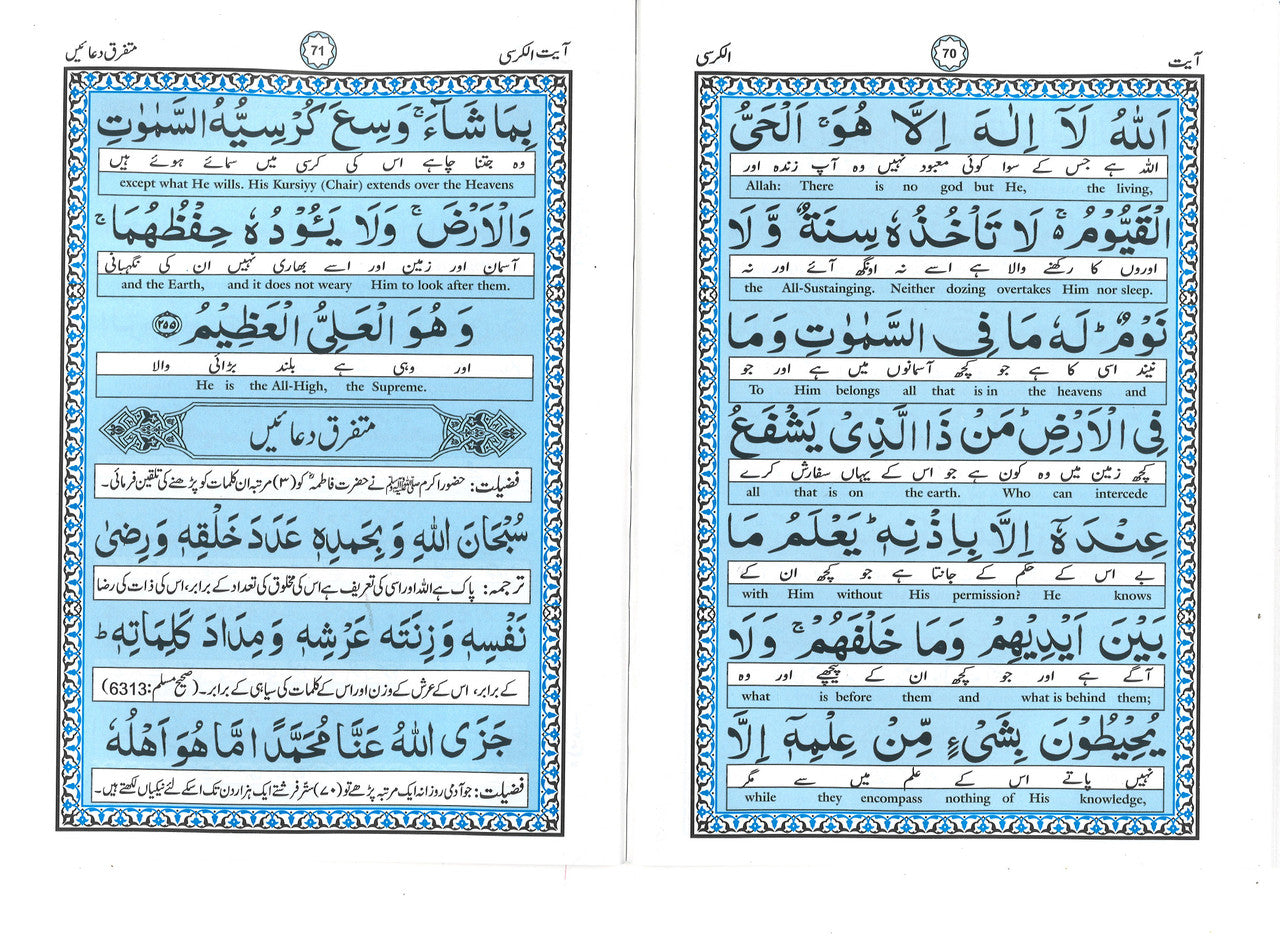 آیت
70
الکرسی
اَللّٰهُ لَآ اِلٰهَ اِلَّا هُوَ ۚ اَلْحَیُّ
اللہ ہے جس کے سوا کوئی معبود نہیں وہ آپ زندہ اور
Allah: There is no god but He, the living,
الْقَیُّوْمُ ۬ۚ لَا تَاْخُذُهٗ سِنَةٌ وَّ لَا
اوروں کا رکھنے والا ہے اسے نہ اونگھ آئے اور نہ
the All-Sustainging. Neither dozing overtakes Him nor sleep.
نَوْمٌ ؕ لَهٗ مَا فِی السَّمٰوٰتِ وَمَا
نیند اسی کا ہے جو کچھ آسمانوں میں ہے اور جو
To Him belongs all that is in the heavens and
فِی الْاَرْضِ ؕ مَنْ ذَا الَّذِیْ یَشْفَعُ
کچھ زمین میں وہ کون ہے جو اس کے یہاں سفارش کرے
all that is on the earth. Who can intercede
عِنْدَهٗۤ اِلَّا بِاِذْنِهٖ ؕ یَعْلَمُ مَا
بے اس کے حکم کے جانتا ہے جو کچھ ان کے
with Him without His permission? He knows
بَیْنَ اَیْدِیْهِمْ وَمَا خَلْفَهُمْ ۚ وَلَا
آگے ہے اور جو کچھ ان کے پیچھے اور وہ
what is before them and what is behind them;
یُحِیْطُوْنَ بِشَیْءٍ مِّنْ عِلْمِهٖۤ اِلَّا
نہیں پاتے اس کے علم میں سے مگر
while they encompass nothing of His knowledge,
آیت الکرسی
71
متفرق دعائیں
بِمَا شَآءَ ۚ وَسِعَ كُرْسِیُّهُ السَّمٰوٰتِ
وہ جتنا چاہے اس کی کرسی میں سمائے ہوئے ہیں
except what He wills. His Kursiyy (Chair) extends over the Heavens
وَالْاَرْضَ ۚ وَلَا یَـُٔوْدُهٗ حِفْظُهُمَا ۚ
آسمان اور زمین اور اسے بھاری نہیں ان کی نگہبانی
and the Earth, and it does not weary Him to look after them.
وَهُوَ الْعَلِیُّ الْعَظِیْمُ ﴿۲۵۵﴾
اور وہی ہے بلند بڑائی والا
He is the All-High, the Supreme.
متفرق دعائیں
فضیلت: حضور اکرم ﷺ نے حضرت فاطمہؓ کو (۳) مرتبہ ان کلمات کو پڑھنے کی تلقین فرمائی۔
سُبْحَانَ اللهِ وَ بِحَمْدِهٖ عَدَدَ خَلْقِهٖ وَ رِضٰی
ترجمہ: پاک ہے اللہ اور اسی کی تعریف ہے اس کی مخلوق کی تعداد کے برابر، اس کی ذات کی رضا
نَفْسِهٖ وَ زِنَتَه عَرْشِهٖ وَ مِدَادَ كَلِمَاتِهٖ ؕ
کے برابر، اس کے عرش کے وزن اور اس کے کلمات کی سیاہی کے برابر۔ (صحیح مسلم: 6313)
جَزَی اللهُ عَنَّا مُحَمَّدًا امَّا هُوَ اَهْلُهٗ
فضیلت: جو آدمی روزانہ ایک مرتبہ پڑھے تو (۷۰) ستّر فرشتے ایک ہزار دن تک اسکے لئے نیکیاں لکھتے ہیں۔